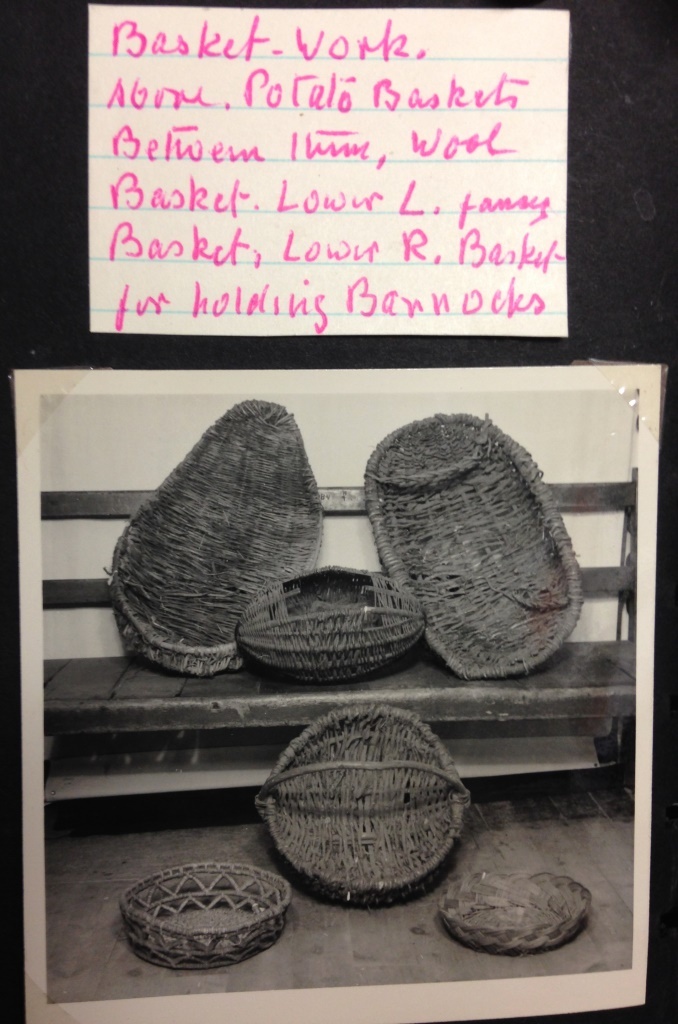 Basket-Work.
Above. Potato Baskets
Between them, Wool
Basket. Lower L. fancy
Basket, Lower R. Basket
for holding Bannocks